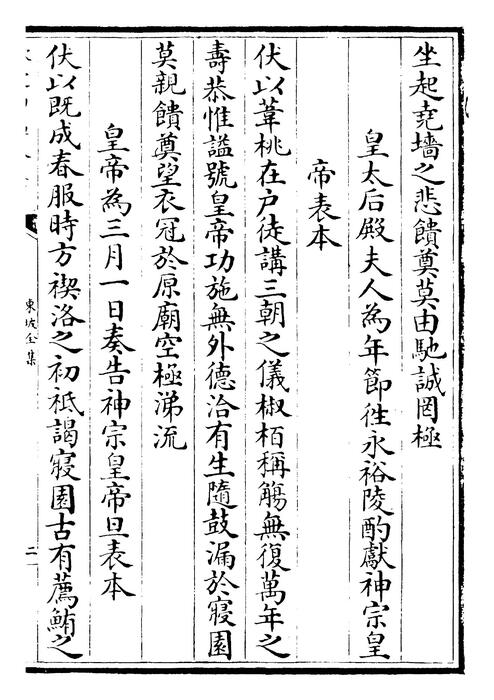 坐起堯墻之悲饋奠莫由馳誠罔極
皇太后殿夫人為年節徃永裕陵酌獻神宗皇
帝表本
伏以葦桃在戶徒講三朝之儀椒栢稱觴無復萬年之
壽恭惟謚號皇帝功施無外德洽有生隨鼓漏於寢園
莫親饋奠望衣冠於原廟空極涕流
皇帝為三月一日奏告神宗皇帝旦表本
伏以既成春服時方禊洛之初祗謁寢園古有薦鮪之
東坡全集